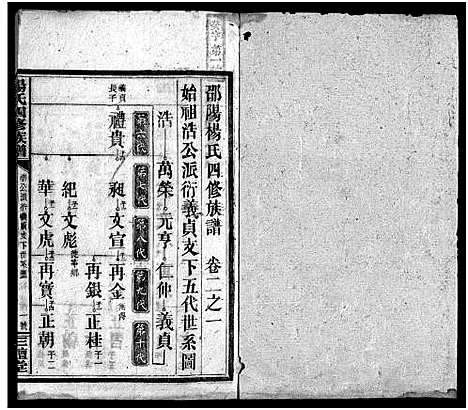 邵陽楊氏四修族譜 卷二之一
始祖浩公派衍義貞支下五代世系圖
浩 萬榮 元亨 仁仲 義貞
第六代 第七代 第八代 第九代 第十代
義貞長子 禮貴 昶 文宣 再金
再銀 正桂 子一
紀 文彪
華 文虎 再寶 正朝 子二
楊氏四修族譜